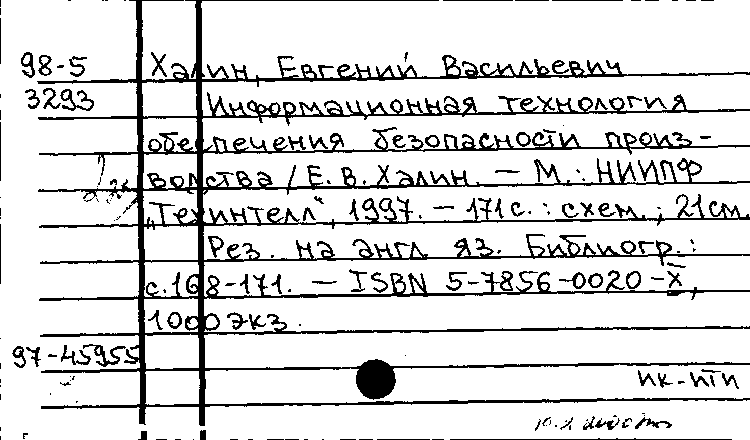 98-5 Халин, Евгений Васильевич
3293 Информационная технология
обеспечения безопасности произ-
водства / Е. В. Халин. — М. : НИИПФ
„Техинтелл“, 1997. — 171 с. : схем. ; 21 см.
Рез. на англ яз. Библиогр. :
с. 168-171. — ISBN 5-7856-0020-X,
1000 экз.
97-45955
ИК-ИТИ